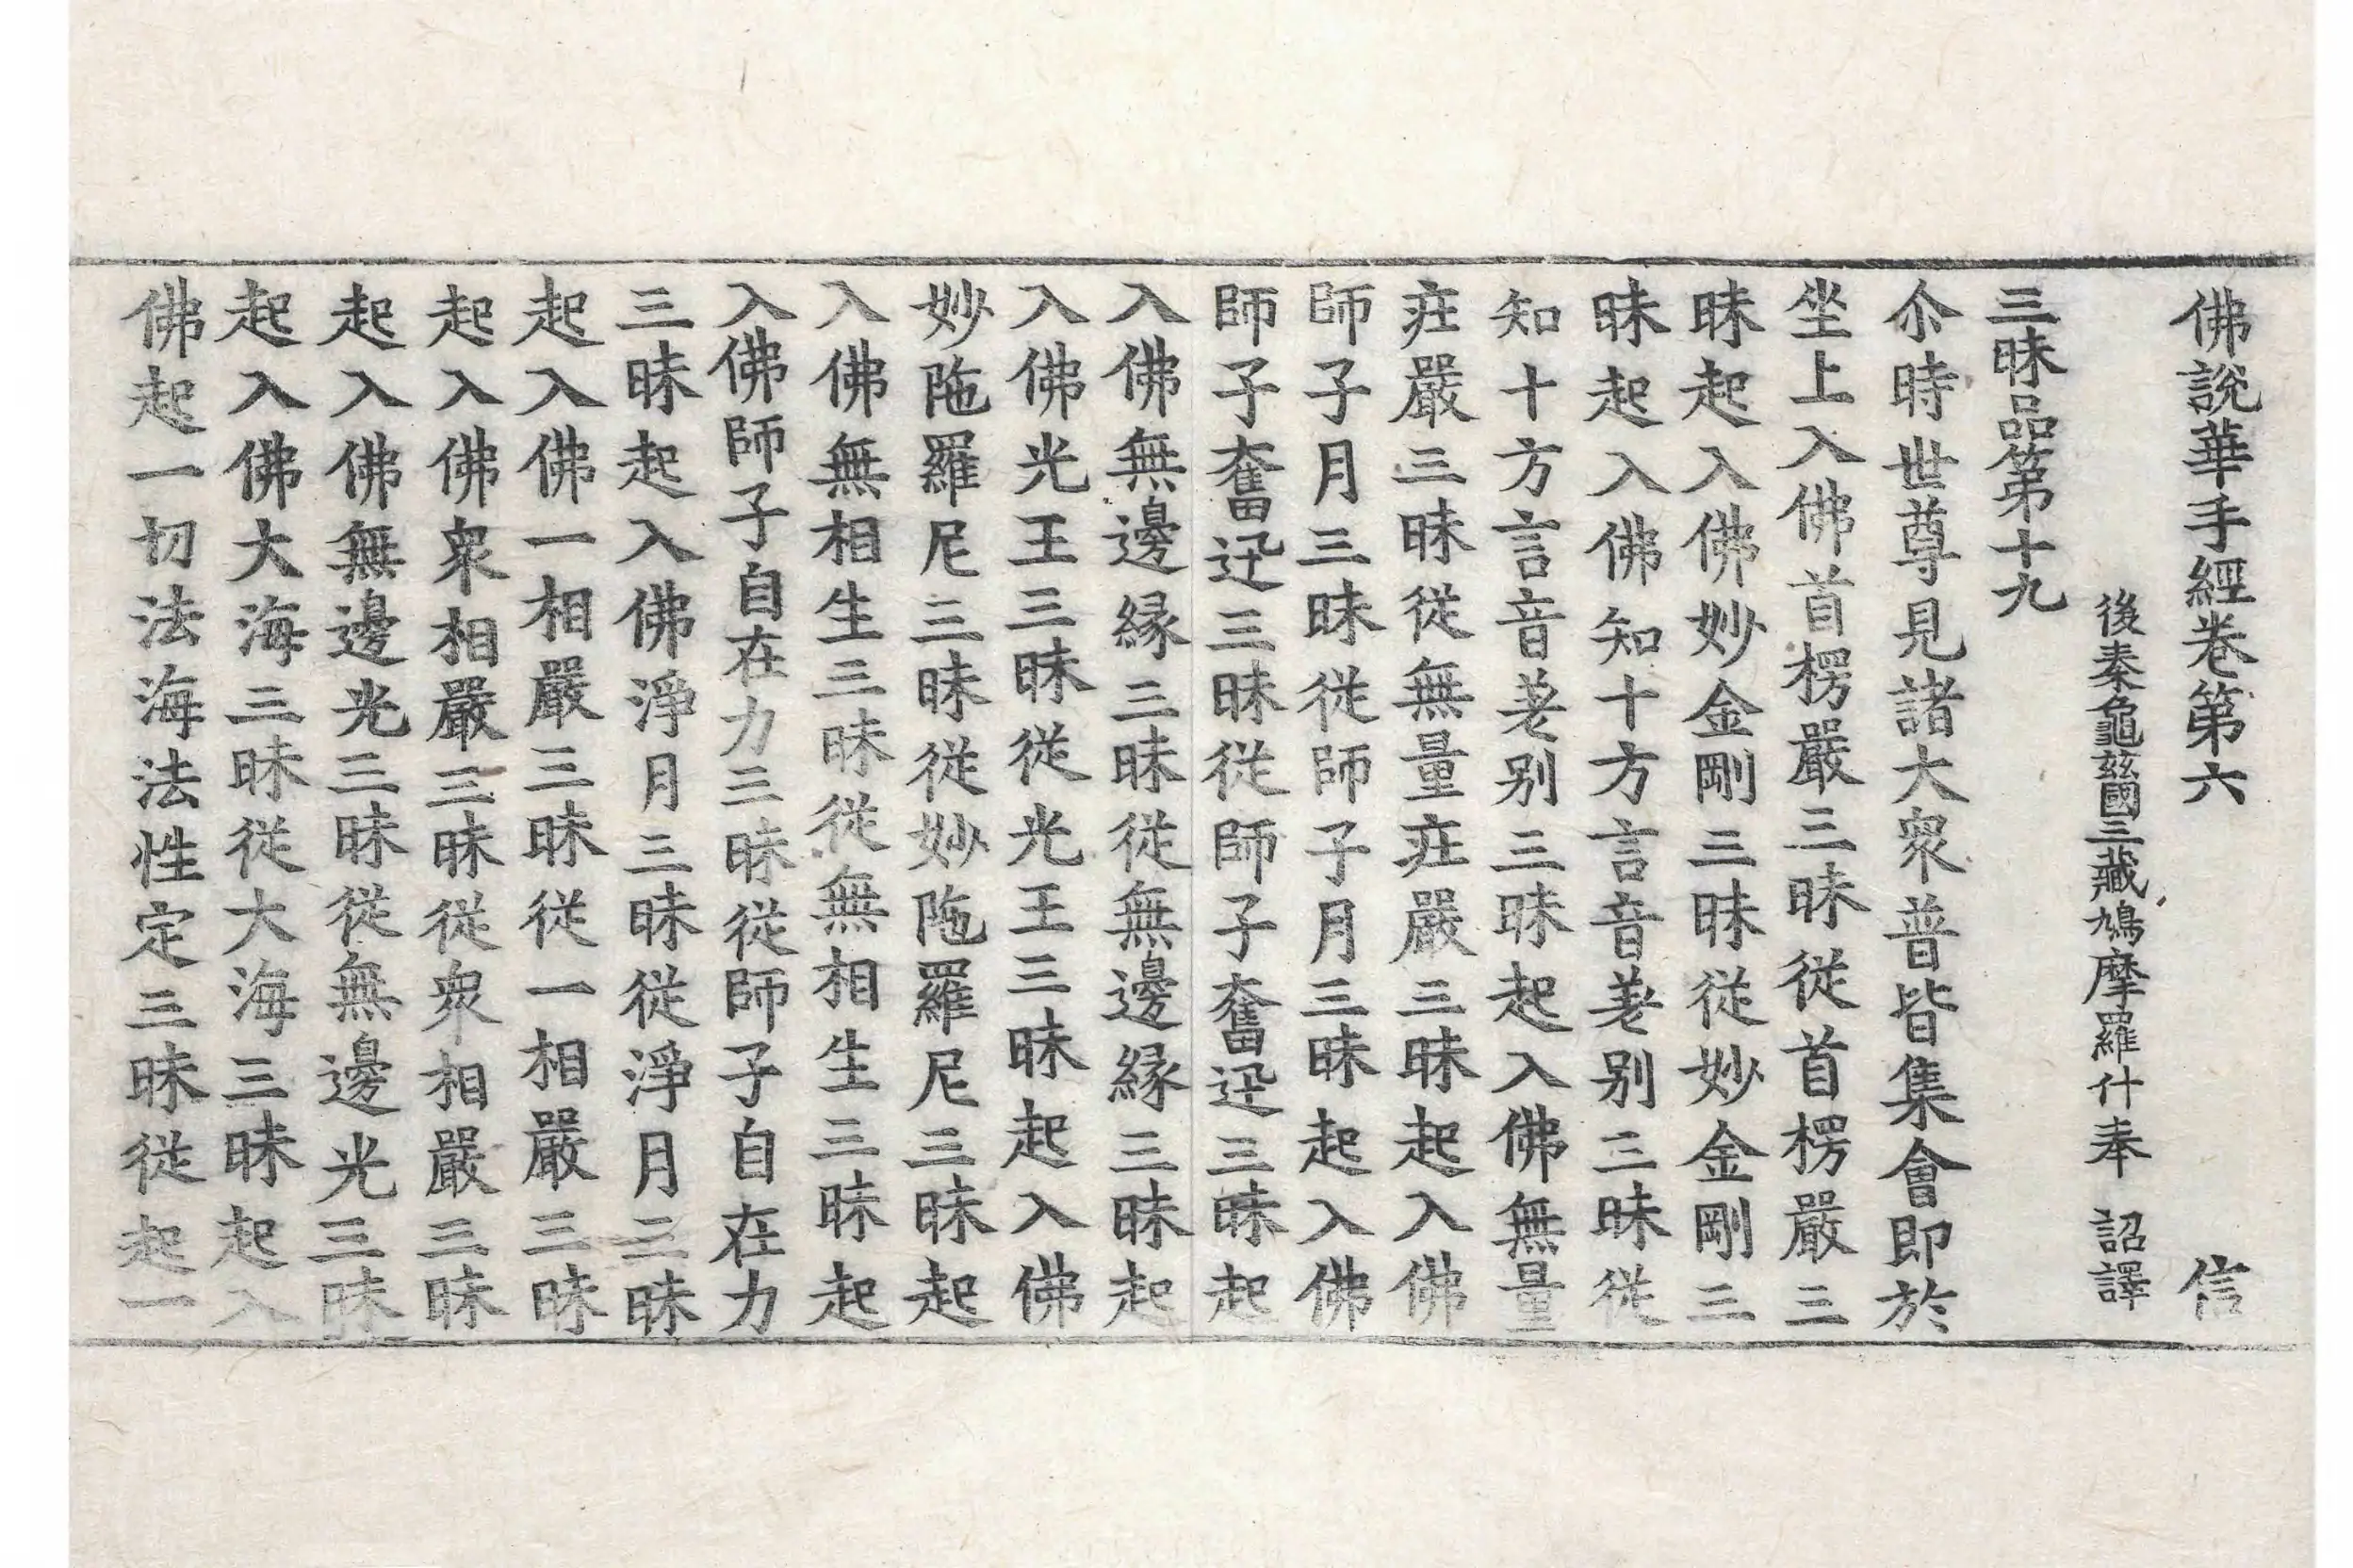 佛說華手經卷第六 信
後秦龜茲國三藏鳩摩羅什奉 詔譯
三昧品第十九
尒時世尊見諸大衆普皆集會即於
坐上入佛首楞嚴三昧從首楞嚴三
昧起入佛妙金剛三昧從妙金剛三
昧起入佛知十方言音差別三昧從
知十方言音差別三昧起入佛無量
莊嚴三昧從無量莊嚴三昧起入佛
師子月三昧從師子月三昧起入佛
師子奮迅三昧從師子奮迅三昧起
入佛無邊緣三昧從無邊緣三昧起
入佛光王三昧從光王三昧起入佛
妙陁羅尼三昧從妙陁羅尼三昧起
入佛無相生三昧從無相生三昧起
入佛師子自在力三昧從師子自在力
三昧起入佛淨月三昧從淨月三昧
起入佛一相嚴三昧從一相嚴三昧
起入佛衆相嚴三昧從衆相嚴三昧
起入佛無邊光三昧從無邊光三昧
起入佛大海三昧從大海三昧起入
佛起一切法海法性定三昧從起一